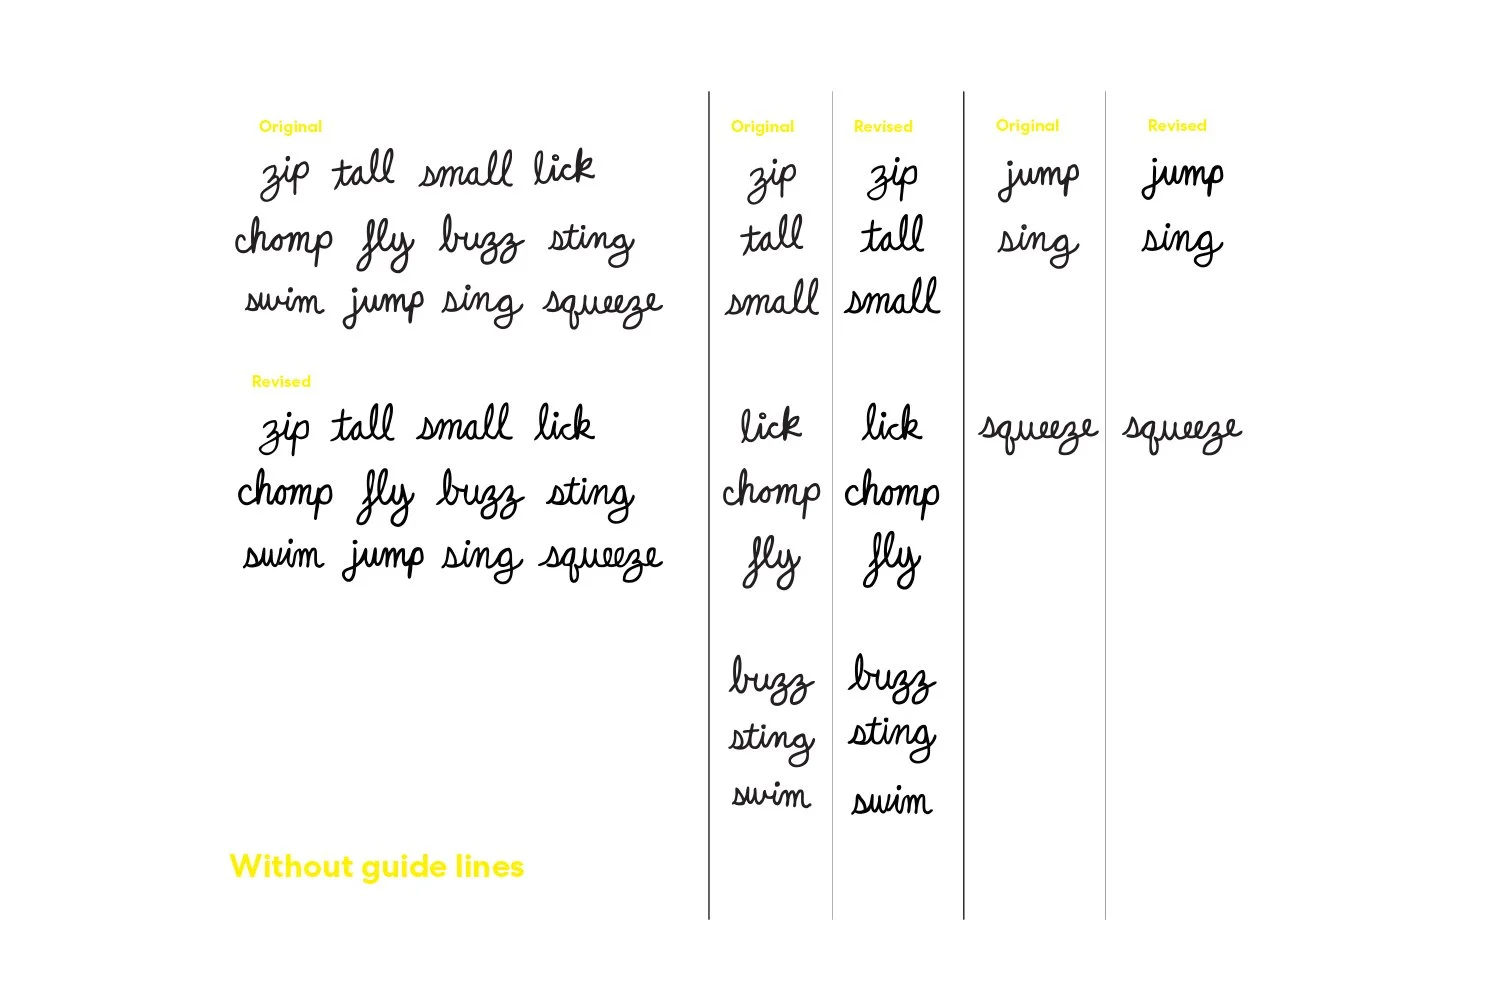 Original
zip tall small lick
chomp fly buzz sting
swim jump sing squeeze
Revised
zip tall small lick
chomp fly buzz sting
swim jump sing squeeze
Without guide lines
Original Revised
zip zip
tall tall
small small
lick lick
chomp chomp
fly fly
buzz buzz
sting sting
swim swim
Original Revised
jump jump
sing sing
squeeze squeeze